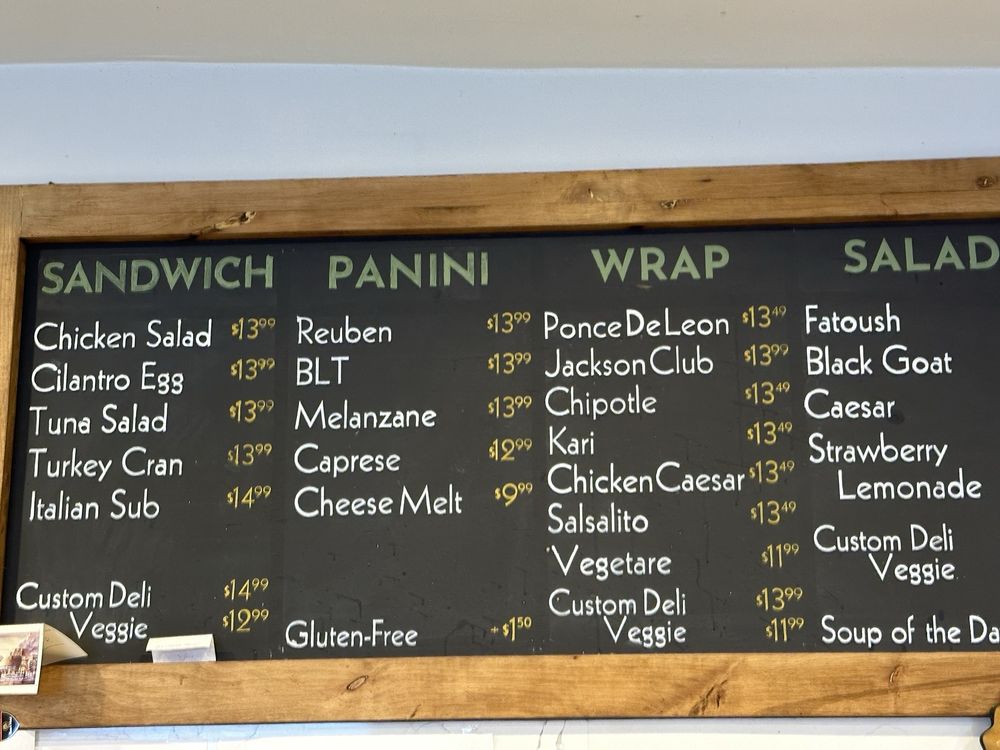 SANDWICH
Chicken Salad $13.99
Cilantro Egg $13.99
Tuna Salad $13.99
Turkey Cran $13.99
Italian Sub $14.99
Custom Deli $14.99
Veggie $12.99
PANINI
Reuben $13.99
BLT $13.99
Melanzane $13.99
Caprese $12.99
Cheese Melt $9.99
Gluten-Free +$1.50
WRAP
Ponce De Leon $13.49
Jackson Club $13.99
Chipotle $13.49
Kari $13.49
Chicken Caesar $13.49
Salsalito $13.49
Vegetare $11.99
Custom Deli $13.99
Veggie $11.99
SALAD
Fatoush
Black Goat
Caesar
Strawberry
Lemonade
Custom Deli
Veggie
Soup of the Da